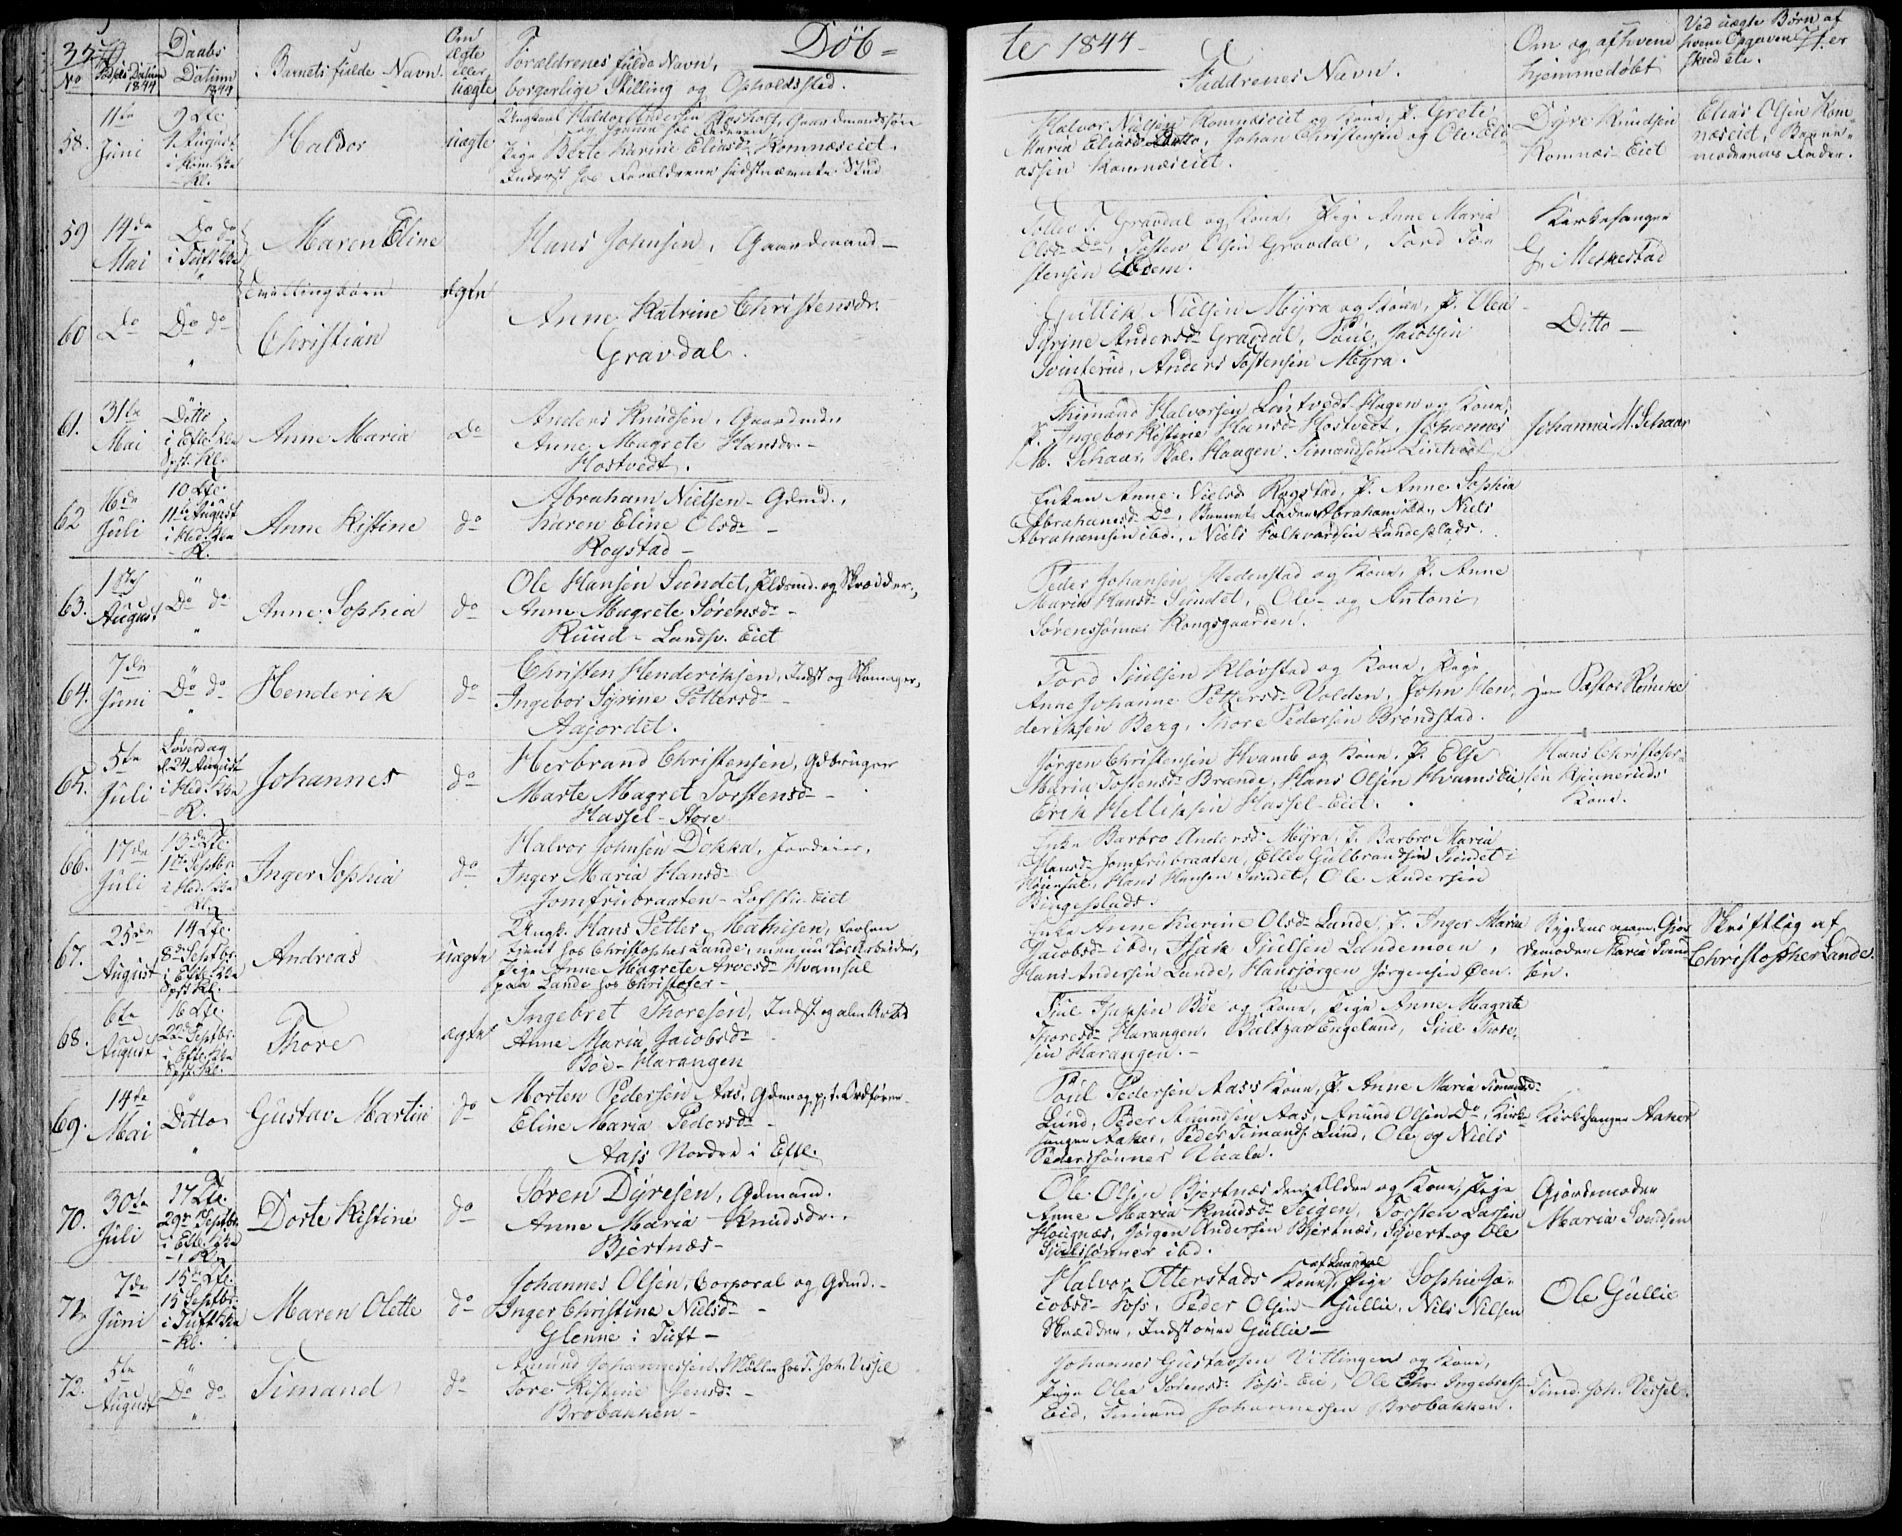 Döbte 1844
No
Fødsels Datum 1844
Daabs Datum 1844
Barnets fulde Navn.
Om ægte eller uægte
Forældrenes fulde Navn, borgerlige Stilling og Opholdssted.
Faddrenes Navn.
Om og af hvem hjemmedøbt
Ved uægte Børn af hvem Opgaven er skeed etc.
58.
11te Juni
4 August
Haldor
uægte
Pige Berte Karine Eliasd. Komnæseiet.
Halvor Nielsen Komnæseiet og Kone, P. Grete
Maria Eliasd. Ditto, Johan Christensen og Ole Eli-
assen Komnæseiet.
Dyre Knudsen
Komnæs-Eiet
Elias Olsen Kom-
næseiet, Barne-
moderens Fader.
59
14de Mai
Do do
i Tuft
Maren Eline
Hans Johnsen, Gaardmand
Gravdal og Kone, Pige Anne Maria
Olsd. Do, Tosten Olsen Gravdal, Tord To-
stensen ibidem.
Kirkesanger
G. Mehestad
Tvillingbørn
ægte
60
Do
Do do
Christian
Anne Katrine Christensdr.
Gravdal.
Gullik Nielsen Myra og Kone, P. Olea
Syrine Andersd. Gravdal, Poul Jacobsen
Svinterud, Anders Tostensen Myra.
Ditto
61.
31te Mai
Ditto
Anne Maria
Do
Anders Knudsen, Gaardmd.
Anne Magrete Hansdr.
Hostvedt.
Timand Halvorsen Lintvedt-Hagen og Kone,
P. Ingebor Kistine Hansd. Hostvedt, Johannes
M. Schaar, Haagen Timandsen Lintvedt
Johannes M. Schaar
62
16de Juli
10
11te August
Anne Kistine
do
Abraham Nielsen - Gdmd.,
Karen Eline Olsd.
Rogstad -
Enken Anne Nielsd. Rogstad, P. Anne Sophia
Abrahamsd. Do, Barnets Fader Abraham ibd., Niels
Abrahamsen ibd., Niels Falkvardsen Lundeplads.
63.
1ste August
Do do
Anne Sophia
do
Ole Hansen Sundet, og Skrædder,
Anne Magrete Sørensd.
Ruud - Landsv. Eiet
Peder Johansen Stedenstad og Kone, P. Anne
Maria Hansd. Sundet, Ole og Antoni
Sørenssønner Kongsgaarden.
64.
7de Juni
Do do
Henderik
do
Christen Henderiksen, Indst og Skomager,
Ingebor Syrine Pettersd.
Aajordet.
Tord Siulsen Kløvstad og Kone, Pige
Anne Johanne Pettersd. Volden, John Hen-
deriksen Berg, Thore Pedersen Brøndstad.
Hr Pastor Reincke
65.
5te Juli
Løverdag
d. 24 August
Johannes
do
Herbrand Christensen, Gdbruger
Marte Magret Torstensd.
Hassel-Store
Jørgen Christensen Hvamb og Kone, P. Else
Maria Tostensd. Brænde, Hans Olsen Hvamseie,
Erik Helliksen Hassel-Eiet.
Hans Christofer-
sen Kjennerud
Kone.
66.
17de Juli
1te Septbr
Inger Sophia
do
Halvor Johnsen Dokka, Jordeier,
Inger Maria Hansd.
Jomfrubraaten - Lofsth. Eiet
Enke Barbro Andersd. Myra, P. Barbro Maria
Hansd. Jomfrubraaten, Ellev Gulbrandsen Sundet i
Hans Hansen Sundet, Ole Andersen
Bingeplads.
67.
25de August
14
8de Septbr.
Andreas
uægte
Ungk. Hans Petter Mathisen,
tjent hos Christopher Lande, men nu Løsarbeider,
Pige Anne Magrete Arvesd. Hvamsal
paa Lande hos Christofer -
Enke Anne Karine Olsd. Lande, P. Inger Maria
Jacobsd. ibd., Isak Siulsen Landemoen,
Hans Andersen Lande, Hansjørgen Jørgensen Øen.
Bygdens exam. Gjor-
demoder Maria Svend-
sen.
Skriftlig af
Christopher Lande.
68.
6te August
16
22de Septbr.
Thore
ægte
Ingebret Thoresen, Indst og alm Arbd
Anne Maria Jacobsd.
Böe - Harangen
Siul Isaksen Böe og Kone, Pige Anne Magrete
Thoresd. Harangen, Baltzar Engelund, Siul Thore-
sen Harangen. -
69.
14te Mai
Ditto
Gustav Martin
do
Morten Pedersen Aas, Gdmd og p. t. Ordfører
Eline Maria Pedersd.
Aas Nordre i Efte.
Poul Pedersen Aas's Kone, P. Anne Maria Timandsd.
Lund, Peder Amundsen Aas, Amund Olsen Do, Kirke-
sanger Aaker, Peder Timands. Lund, Ole og Niels
Pederssønner Vaala.
Kirkesanger Aaker
70.
30te Juli
17
29de Septbr
Dorte Kistine
do
Søren Dyresen, Gdmand.
Anne Maria Knudsdr.
Bjertnæs -
Ole Olsen Bjertnæs den Eldre og Kone, Pige
Anne Maria Knudsd. Teigen, Torsten Larsen
Hougnæs, Jørgen Andersen Bjertnæs, Syvert og Ole
Siulssønner ibd.
Gjordemoder
Maria Svendsen
71.
7de Juni
15de
15 Septbr.
i Tuft
Maren Olette
do
Johannes Olsen, Corporal og Gdmd. -
Inger Christine Nielsd.
Glenne i Tuft -
Halvor Otterstads Kone, Pige Sophie Ja-
cobsd. Foss, Peder Olsen Gullie, Nils Nilsen
Skrædder, Indst øvre Gullie -
Ole Gullie
72.
5te August
Do do
Timand
do
Amund Johannessen, Møller hos T. Joh. Vessel
Tore Kistine Jensd.
Brobakken -
Johannes Gustavsen Vittingen og Kone,
Pige Olea Sørensd. Foss-Eie, Ole Chr. Ingebrets
Eid, Timand Johannessen Brobakken.
Timd. Joh. Vessel.